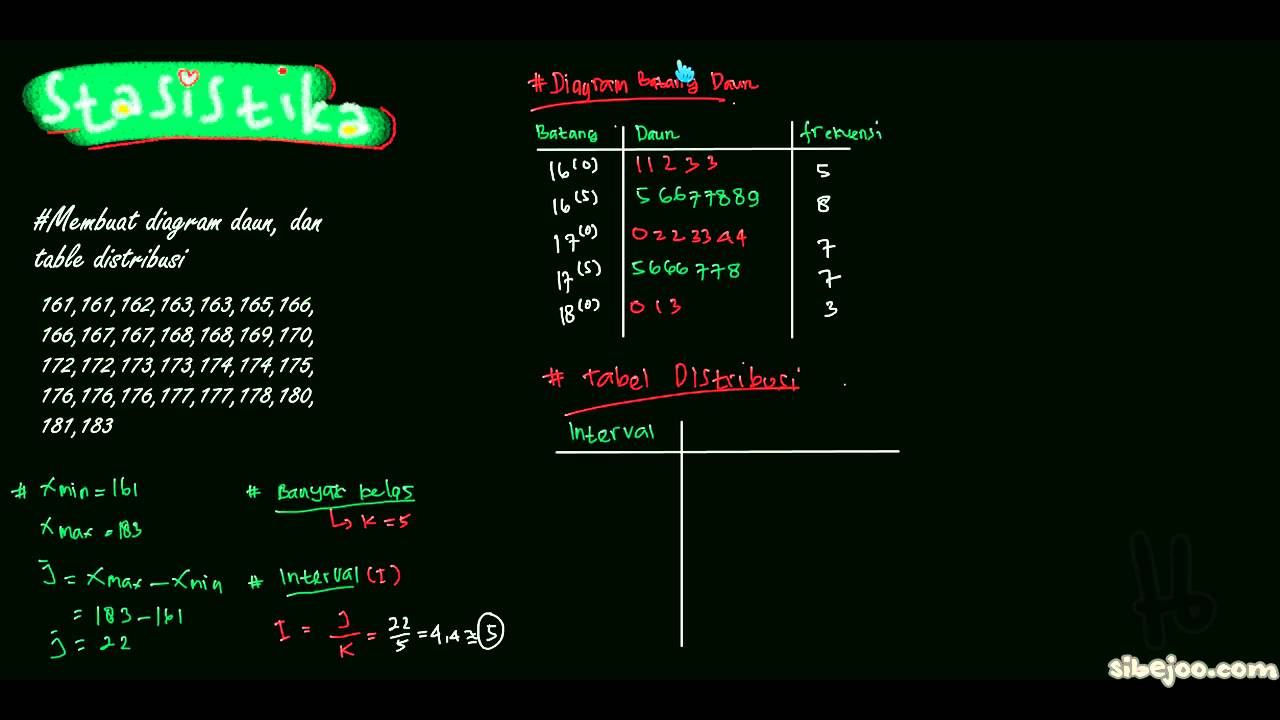 Stasistika
#Membuat diagram daun, dan
table distribusi
161, 161, 162, 163, 163, 165, 166,
166, 167, 167, 168, 168, 169, 170,
172, 172, 173, 173, 174, 174, 175,
176, 176, 176, 177, 177, 178, 180,
181, 183
# xmin = 161
xmax = 183
J = xmax - xmin
= 183 - 161
J = 22
# Banyak kelas
↳ K = 5
# Interval (I)
I = J/K = 22/5 = 4,4 ≅ 5
# Diagram Batang Daun
Batang Daun frekuensi
16(0) 1 1 2 3 3 5
16(5) 5 6 6 7 7 8 8 9 8
17(0) 0 2 2 3 3 4 4 7
17(5) 5 6 6 6 7 7 8 7
18(0) 0 1 3 3
# Tabel Distribusi
Interval
sibejoo.com